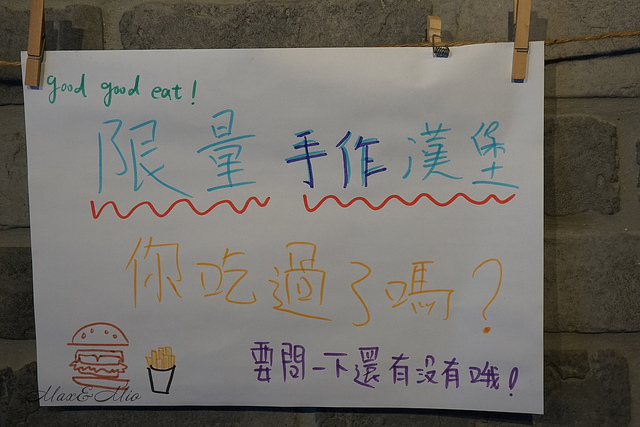 good good eat!
限量 手作漢堡
你吃過了嗎?
要問一下還有沒有哦!
Max&Mio